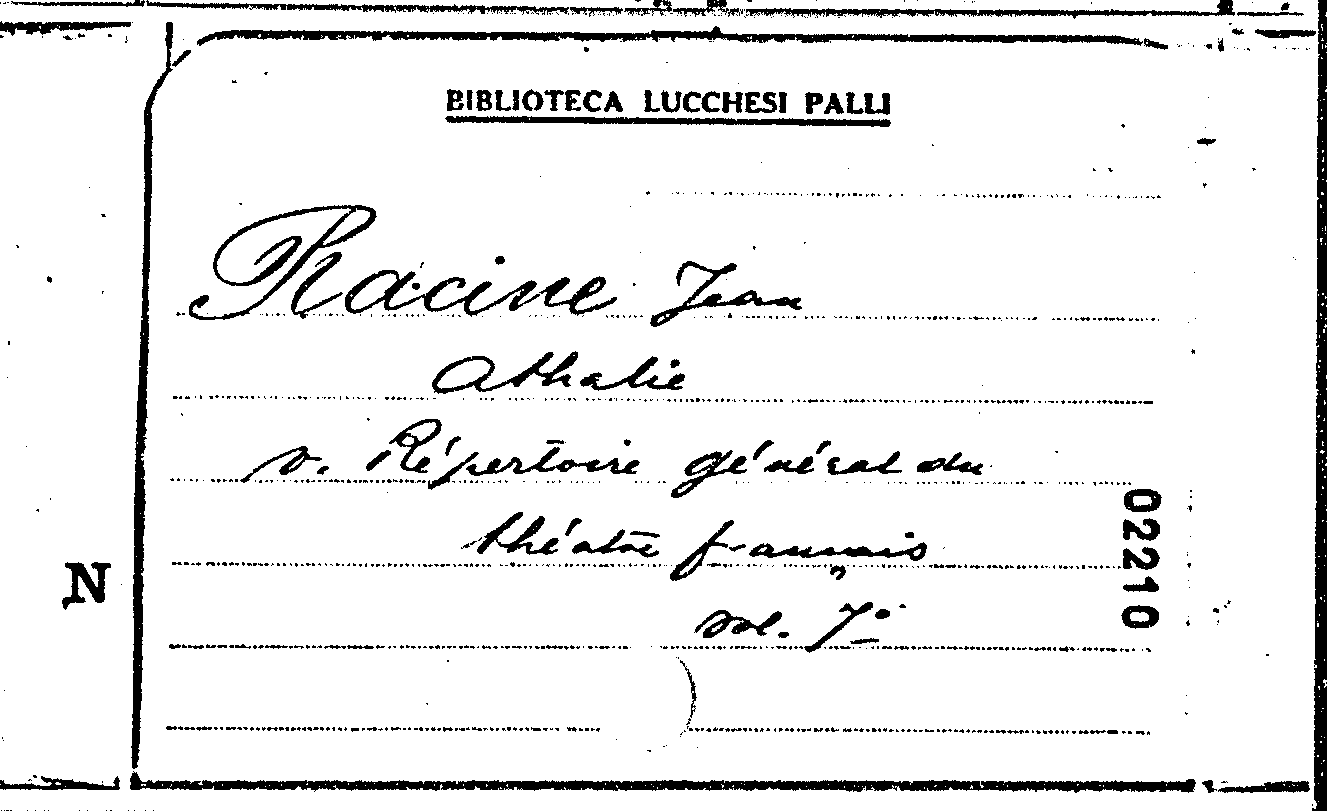 BIBLIOTECA LUCCHESI PALLI
Racine Jean
Athalie
v. Répertoire général du
théatre français
vol. 7º
02210
N